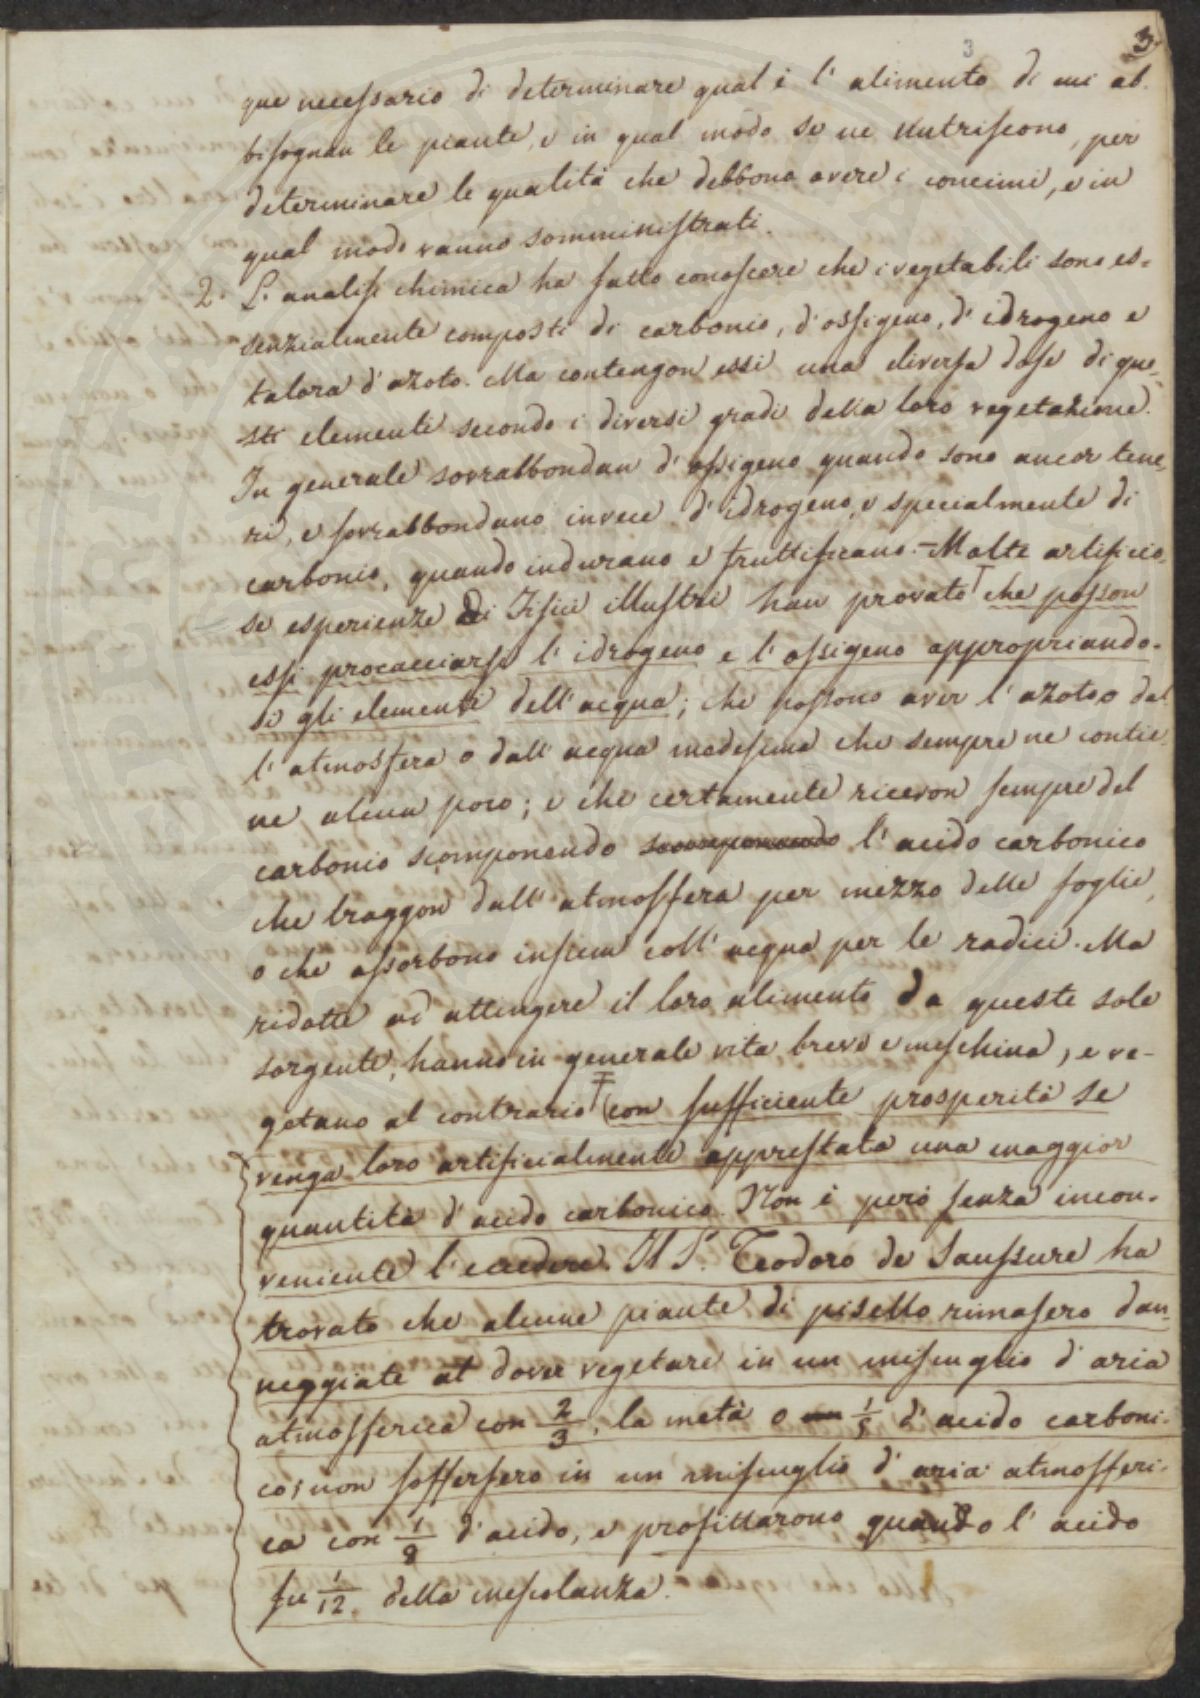 3
3.
que necessario di determinare qual è l'alimento di cui ab-
bisognan le piante, e in qual modo se ne nutriscono, per
determinare le qualità che debbono avere i concimi, e in
qual modo vanno somministrati.
2. L'analisi chimica ha fatto conoscere che i vegetabili sono es-
senzialmente composti di carbonio, d'ossigeno, d'idrogeno e
talora d'azoto. Ma contengon essi una diversa dose di que-
sti elementi secondo i diversi gradi della loro vegetazione.
In generale sovrabbondan d'ossigeno quando sono ancor tene-
ri, e sovrabbondano invece d'idrogeno, e specialmente di
carbonio, quando indurano e fruttificano. = Molte artificio-
se esperienze di Fisici illustri han provato che posson
essi procacciarsi l'idrogeno e l'ossigeno appropriando-
si gli elementi dell'acqua; che possono aver l'azoto o dal
l'atmosfera o dall'acqua medesima che sempre ne contie-
ne alcun poco; e che certamente ricevon sempre del
carbonio scomponendo scomponendo l'acido carbonico
che traggon dall'atmosfera per mezzo delle foglie,
o che assorbono insiem coll'acqua per le radici. Ma
ridotte ad attingere il loro alimento da queste sole
sorgenti, hanno in generale vita breve e meschina, e ve-
getano al contrario (con sufficiente prosperità se
venga loro artificialmente apprestata una maggior
quantità d'acido carbonico. Non è però senza incon-
veniente l'eccedere. Il S. Teodoro de Saussure ha
trovato che alcune piante di pisello rimasero dan-
neggiate al dover vegetare in un miscuglio d'aria
atmosferica con 2/3, la metà o 1/5 d'acido carboni-
co; non soffersero in un miscuglio d'aria atmosferi-
ca con 1/8 d'acido, e profittarono quando l'acido
fu 1/12. della mescolanza.